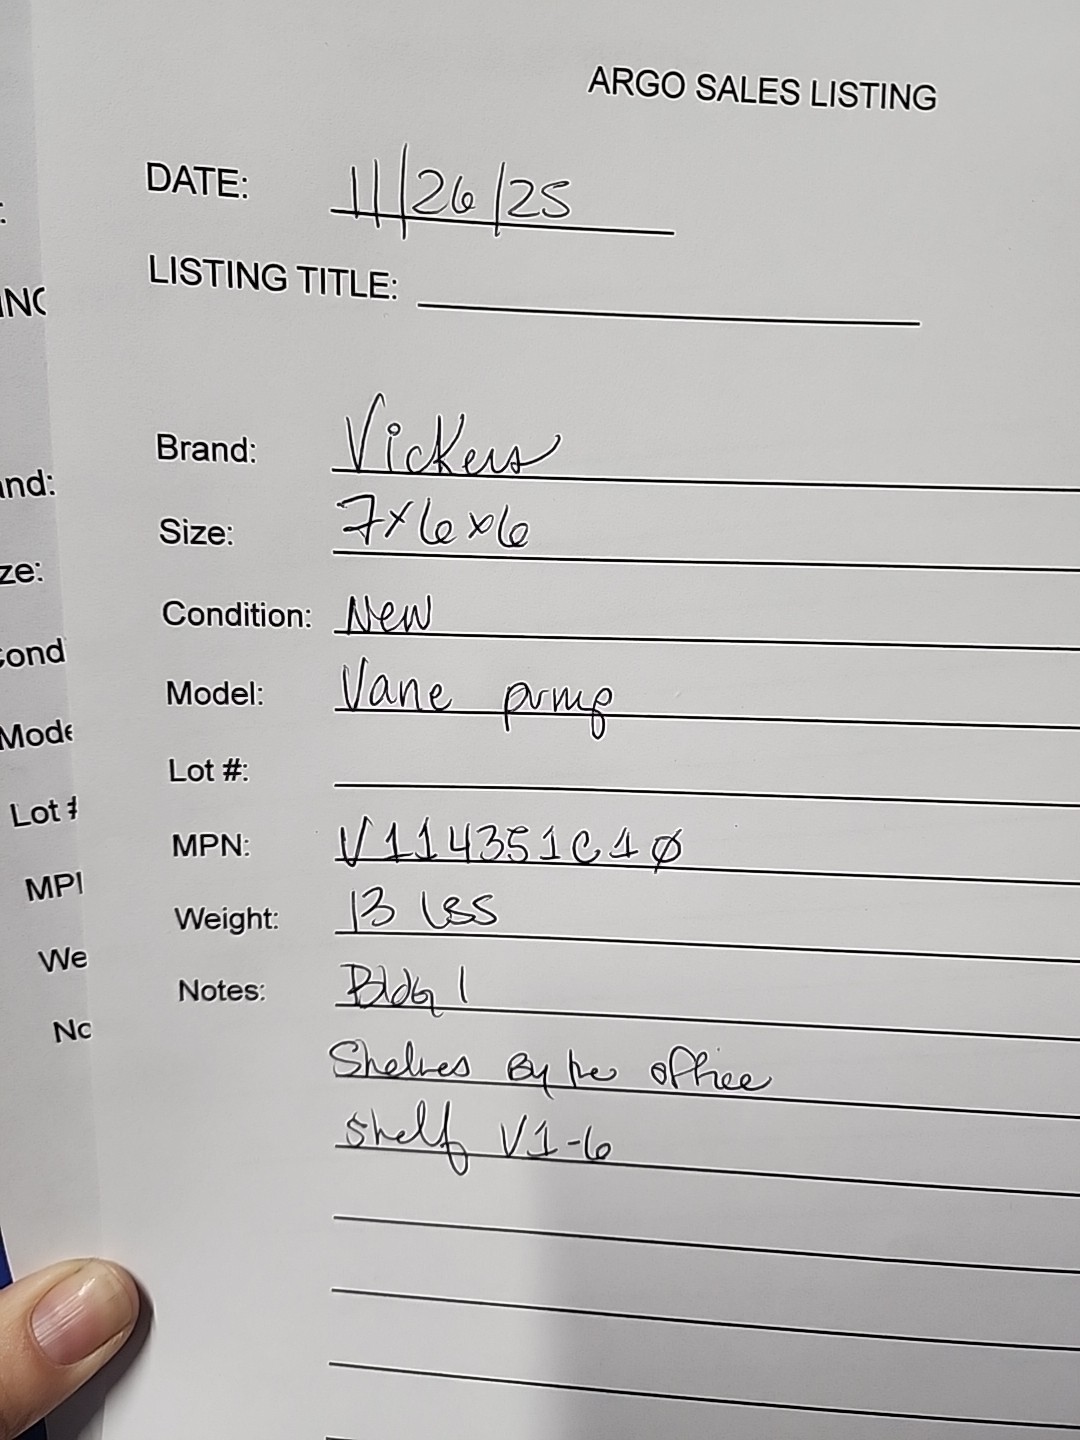 ARGO SALES LISTING
DATE: 11/26/25
LISTING TITLE:
Brand: Vickers
Size: 7x6x6
Condition: New
Model: Vane pump
Lot #:
MPN: V114351C10
Weight: 13 LBS
Notes: Bldg 1
Shelves By the office
shelf V1-6
:
ING
and:
ze:
Cond
Mode
Lot #
MPI
We
No